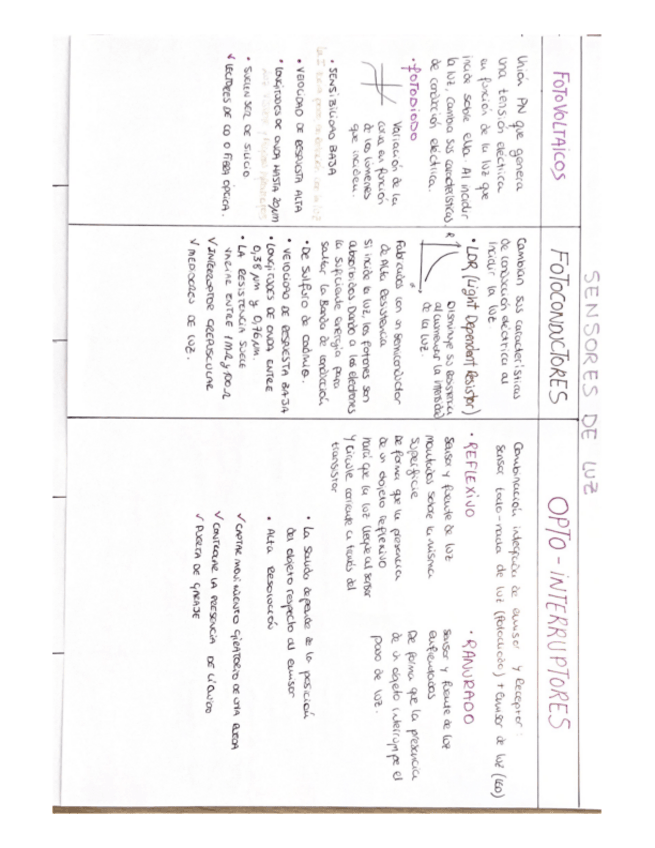 SENSORES DE LUZ
FOTOVOLTAICOS
Unión PN que genera
una tensión eléctrica
en función de la luz que
incide sobre ella. Al incidir
la luz, cambia sus características
de conducción eléctrica.
• FOTODIODO
Variación de la
curva en función
de los lúmenes
que inciden.
• SENSIBILIDAD BAJA
• VELOCIDAD DE RESPUESTA ALTA
• LONGITUDES DE ONDA HASTA 20µm
• SUELEN SER DE SILICIO
✓ LECTORES DE CD O FIBRA ÓPTICA.
FOTOCONDUCTORES
Cambian sus características
de conducción eléctrica al
incidir la luz
• LDR (Light Dependent Resistor)
R
Disminuye su Resistencia
al aumentar la intensidad
de la luz.
Fabricados con un semiconductor
de Alta Resistencia
Si incide la luz, los fotones son
absorbidos Dando a los electrones
la suficiente energía para
saltar la Banda de conducción
• De sulfuro de cadmio.
• VELOCIDAD DE RESPUESTA BAJA
• LONGITUDES DE ONDA ENTRE
• LA RESISTENCIA SUELE
VARIAR ENTRE 1MΩ y 100Ω
✓ INTERRUPTOR CREPUSCULAR
✓ MEDIDORES DE LUZ.
OPTO-INTERRUPTORES
Combinación integrada de emisor y Receptor:
sensor todo-nada de luz (Fotodiodo) + Emisor de luz (LED)
• REFLEXIVO
Sensor y fuente de luz
montados sobre la misma
superficie
De forma que la presencia
de un objeto reflexivo
hará que la luz llegue al sensor
y circule corriente a través del
transistor
• RANURADO
Sensor y fuente de luz
enfrentados
De forma que la presencia
de un objeto interrumpe el
paso de luz.
• La salida depende de la posición
del objeto respecto al emisor
• ALTA RESOLUCIÓN
✓ CAPTAR MOVIMIENTO GIRATORIO DE UNA RUEDA
✓ CONTROLAR LA PRESENCIA DE LÍQUIDO
✓ PUERTA DE GARAJE